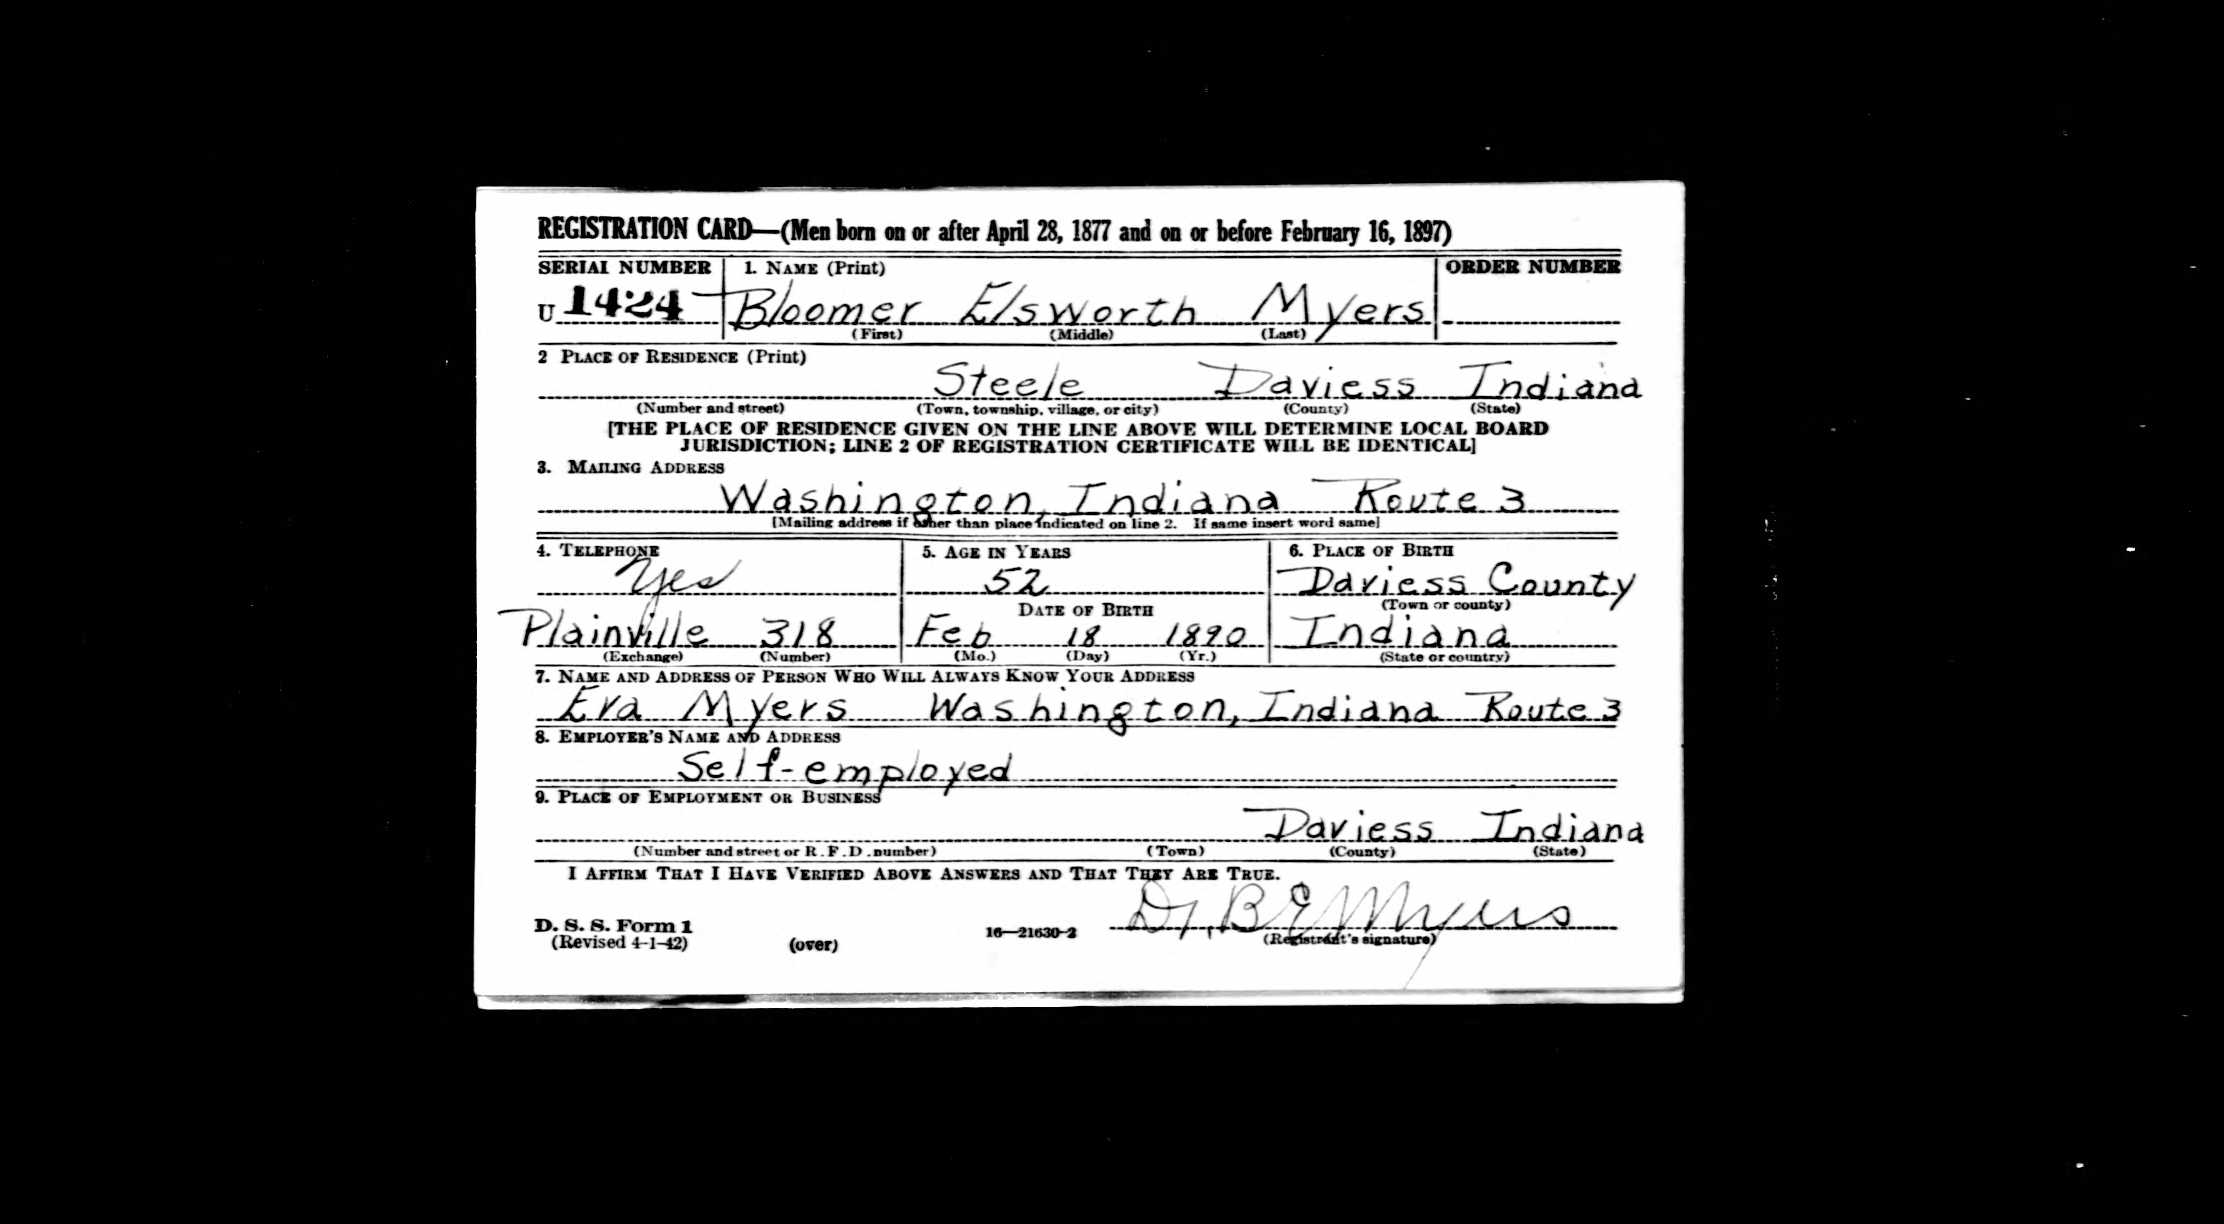 REGISTRATION CARD—(Men born on or after April 28, 1877 and on or before February 16, 1897)
SERIAL NUMBER 1. NAME (Print) ORDER NUMBER
U 1424 Bloomer Elsworth Myers
(First) (Middle) (Last)
2 PLACE OF RESIDENCE (Print)
Steele Daviess Indiana
(Number and street) (Town, township, village, or city) (County) (State)
[THE PLACE OF RESIDENCE GIVEN ON THE LINE ABOVE WILL DETERMINE LOCAL BOARD
JURISDICTION; LINE 2 OF REGISTRATION CERTIFICATE WILL BE IDENTICAL]
3. MAILING ADDRESS
Washington, Indiana Route 3
[Mailing address if other than place indicated on line 2. If same insert word same]
4. TELEPHONE 5. AGE IN YEARS 6. PLACE OF BIRTH
Yes 52 Daviess County
DATE OF BIRTH (Town or county)
Plainville 318 Feb 18 1890 Indiana
(Exchange) (Number) (Mo.) (Day) (Yr.) (State or country)
7. NAME AND ADDRESS OF PERSON WHO WILL ALWAYS KNOW YOUR ADDRESS
Eva Myers Washington, Indiana Route 3
8. EMPLOYER'S NAME AND ADDRESS
Self-employed
9. PLACE OF EMPLOYMENT OR BUSINESS
Daviess Indiana
(Number and street or R. F. D. number) (Town) (County) (State)
I AFFIRM THAT I HAVE VERIFIED ABOVE ANSWERS AND THAT THEY ARE TRUE.
Dr. B E Myers
D. S. S. Form 1
(Revised 4-1-42) (over) 16—21630-2 (Registrant's signature)